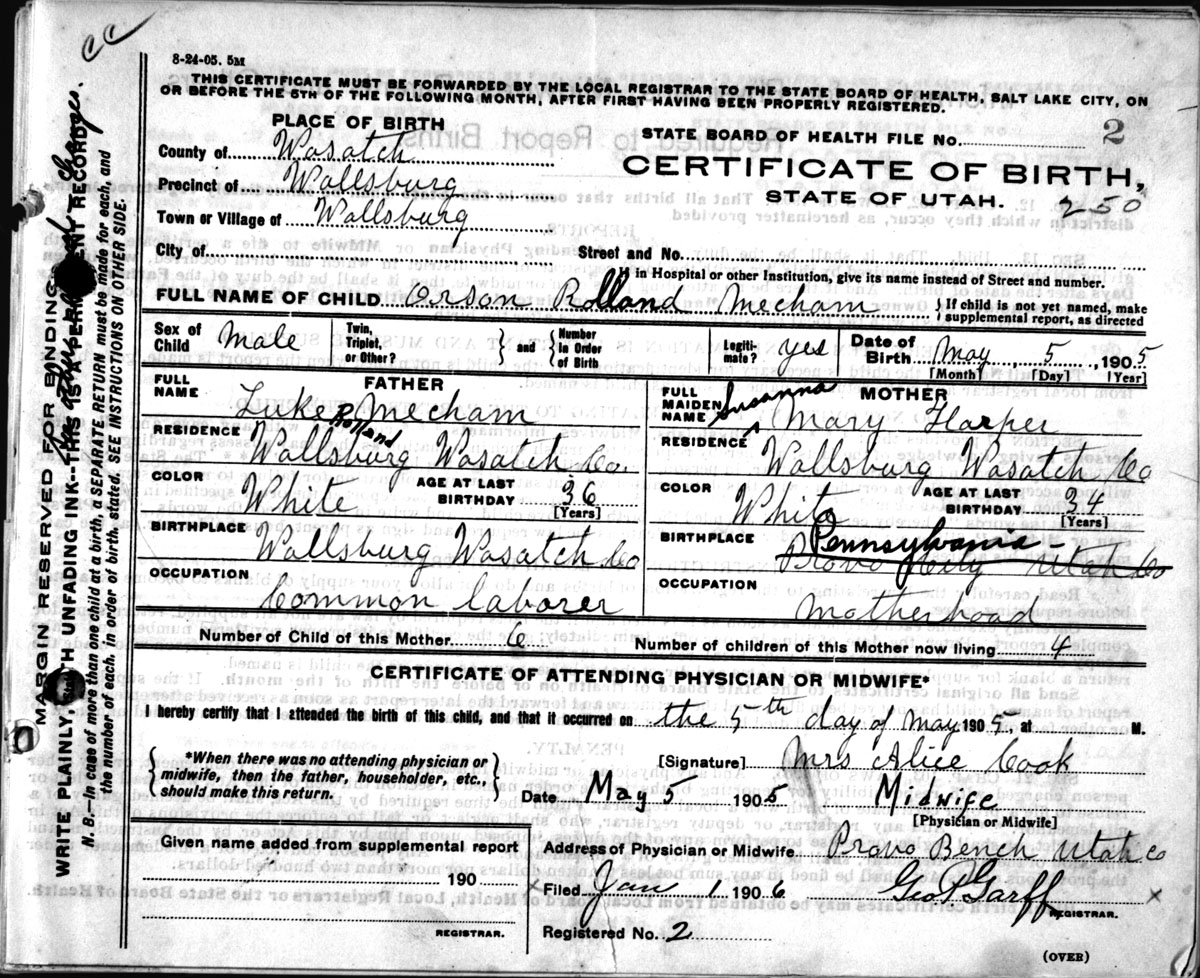 cc
8-24-05. 5M
THIS CERTIFICATE MUST BE FORWARDED BY THE LOCAL REGISTRAR TO THE STATE BOARD OF HEALTH, SALT LAKE CITY, ON
OR BEFORE THE 5TH OF THE FOLLOWING MONTH, AFTER FIRST HAVING BEEN PROPERLY REGISTERED.
PLACE OF BIRTH
STATE BOARD OF HEALTH FILE No. 2
County of Wasatch
CERTIFICATE OF BIRTH,
Precinct of Wallsburg
STATE OF UTAH. 250
Town or Village of Wallsburg
City of
Street and No.
If in Hospital or other Institution, give its name instead of Street and number.
FULL NAME OF CHILD Orson Rolland Mecham
{ If child is not yet named, make
supplemental report, as directed
Sex of Child Male
Twin, Triplet, or Other? } and { Number In Order of Birth
Legiti- mate? yes
Date of Birth May 5, 1905
[Month] [Day] [Year]
FATHER
FULL NAME Luke Rolland Mecham
RESIDENCE Wallsburg Wasatch Co.
COLOR White
AGE AT LAST BIRTHDAY 36
[Years]
BIRTHPLACE Wallsburg Wasatch Co
OCCUPATION Common laborer
MOTHER
FULL MAIDEN NAME Susanna Mary Harper
RESIDENCE Wallsburg Wasatch Co
COLOR White
AGE AT LAST BIRTHDAY 34
[Years]
BIRTHPLACE Pennsylvania-
Provo City Utah Co
OCCUPATION Motherhood
Number of Child of this Mother 6
Number of children of this Mother now living 4
CERTIFICATE OF ATTENDING PHYSICIAN OR MIDWIFE*
I hereby certify that I attended the birth of this child, and that it occurred on the 5th day of May 1905, at M.
{ *When there was no attending physician or
midwife, then the father, householder, etc.,
should make this return. }
[Signature] Mrs Alice Cook
Date May 5 1905 Midwife
[Physician or Midwife]
Given name added from supplemental report
190
REGISTRAR.
Address of Physician or Midwife Provo Bench Utah Co
x Filed Jan 1 1906 Geo P Garff x
REGISTRAR.
Registered No. 2
(OVER)
MARGIN RESERVED FOR BINDING
WRITE PLAINLY, WITH UNFADING INK--THIS IS A PERMANENT RECORD.
N. B.--In case of more than one child at a birth, a SEPARATE RETURN must be made for each, and
the number of each, in order of birth, stated. SEE INSTRUCTIONS ON OTHER SIDE.